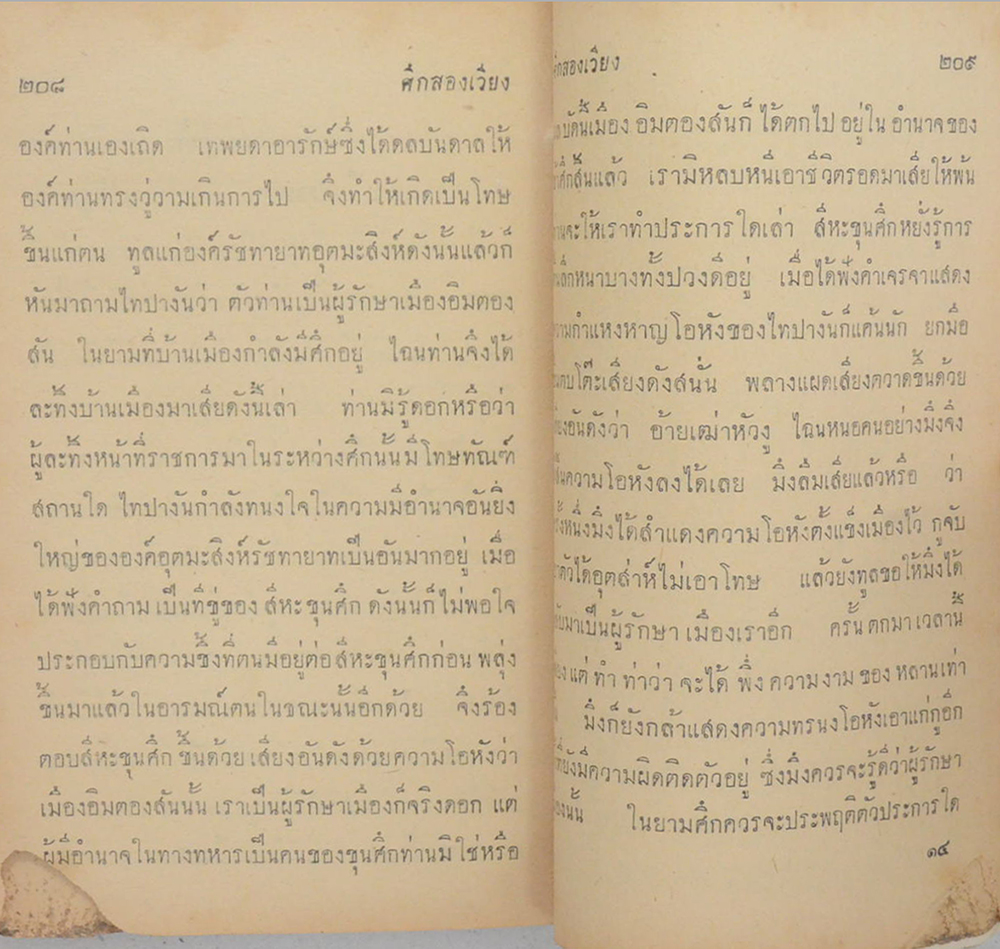 ๒๐๘ ศึกสองเวียง
องค์ท่านเองเถิด เทพยดาอารักษ์ซึ่งได้ดลบันดาลให้
องค์ท่านทรงวู่วามเกินการไป จึงทำให้เกิดเป็นโทษ
ขึ้นแก่ตน ทูลแก่องค์รัชทายาทอุตมะสิงห์ดังนั้นแล้วก็
หันมาถามไทปางันว่า ตัวท่านเป็นผู้รักษาเมืองอิมตอง
สัน ในยามที่บ้านเมืองกำลังมีศึกอยู่ ไฉนท่านจึงได้
ละทิ้งบ้านเมืองมาเสียดังนี้เล่า ท่านมิรู้ดอกหรือว่า
ผู้ละทิ้งหน้าที่ราชการมาในระหว่างศึกนั้นมีโทษทัณฑ์
สถานใด ไทปางันกำลังทนงใจในความมีอำนาจอันยิ่ง
ใหญ่ขององค์อุตมะสิงห์รัชทายาทเป็นอันมากอยู่ เมื่อ
ได้ฟังคำถาม เป็นที่ขู่ของ สีหะขุนศึก ดังนั้นก็ไม่พอใจ
ประกอบกับความชึ้งที่ตนมีอยู่ต่อสีหะขุนศึกก่อน พลุ่ง
ขึ้นมาแล้วในอารมณ์ตนในขณะนั้นอีกด้วย จึงร้อง
ตอบสีหะขุนศึก ขึ้นด้วย เสียงอันดังด้วยความโอหังว่า
เมืองอิมตองสันนั้น เราเป็นผู้รักษาเมืองก็จริงดอก แต่
ผู้มีอำนาจในทางทหารเป็นคนของขุนศึกท่านมิใช่หรือ
ศึกสองเวียง ๒๐๙
บัดนี้เมือง อิมตองสันก็ ได้ตกไป อยู่ใน อำนาจของ
ศึกสิ้นแล้ว เรามิหลบหนีเอาชีวิตรอดมาเสียให้พ้น
จะให้เราทำประการใดเล่า สีหะขุนศึกหยั่งรู้การ
ศึกหนาบางทั้งปวงดีอยู่ เมื่อได้ฟังคำเจรจาแสดง
ความกำแหงหาญโอหังของไทปางันก็แค้นนัก ยกมือ
ตบโต๊ะเสียงดังสนั่น พลางแผดเสียงตวาดขึ้นด้วย
เสียงอันดังว่า อ้ายเฒ่าหัวงู ไฉนหนอคนอย่างมึงจึง
ความโอหังลงได้เลย มึงลืมเสียแล้วหรือ ว่า
ครั้งหนึ่งมึงได้สำแดงความโอหังตั้งแข็งเมืองไว้ กูจับ
ตัวได้อุตส่าห์ไม่เอาโทษ แล้วยังทูลขอให้มึงได้
มาเป็นผู้รักษา เมืองเราอีก ครั้น ตกมา เวลานี้
แต่ ทำ ท่าว่า จะได้ พึ่ง ความงาม ของ หลานเท่า
มึงก็ยังกล้าแสดงความทรนงโอหังเอาแก่กูอีก
ยังมีความผิดติดตัวอยู่ ซึ่งมึงควรจะรู้ดีว่าผู้รักษา
นั้น ในยามศึกควรจะประพฤติตัวประการใด
๑๔